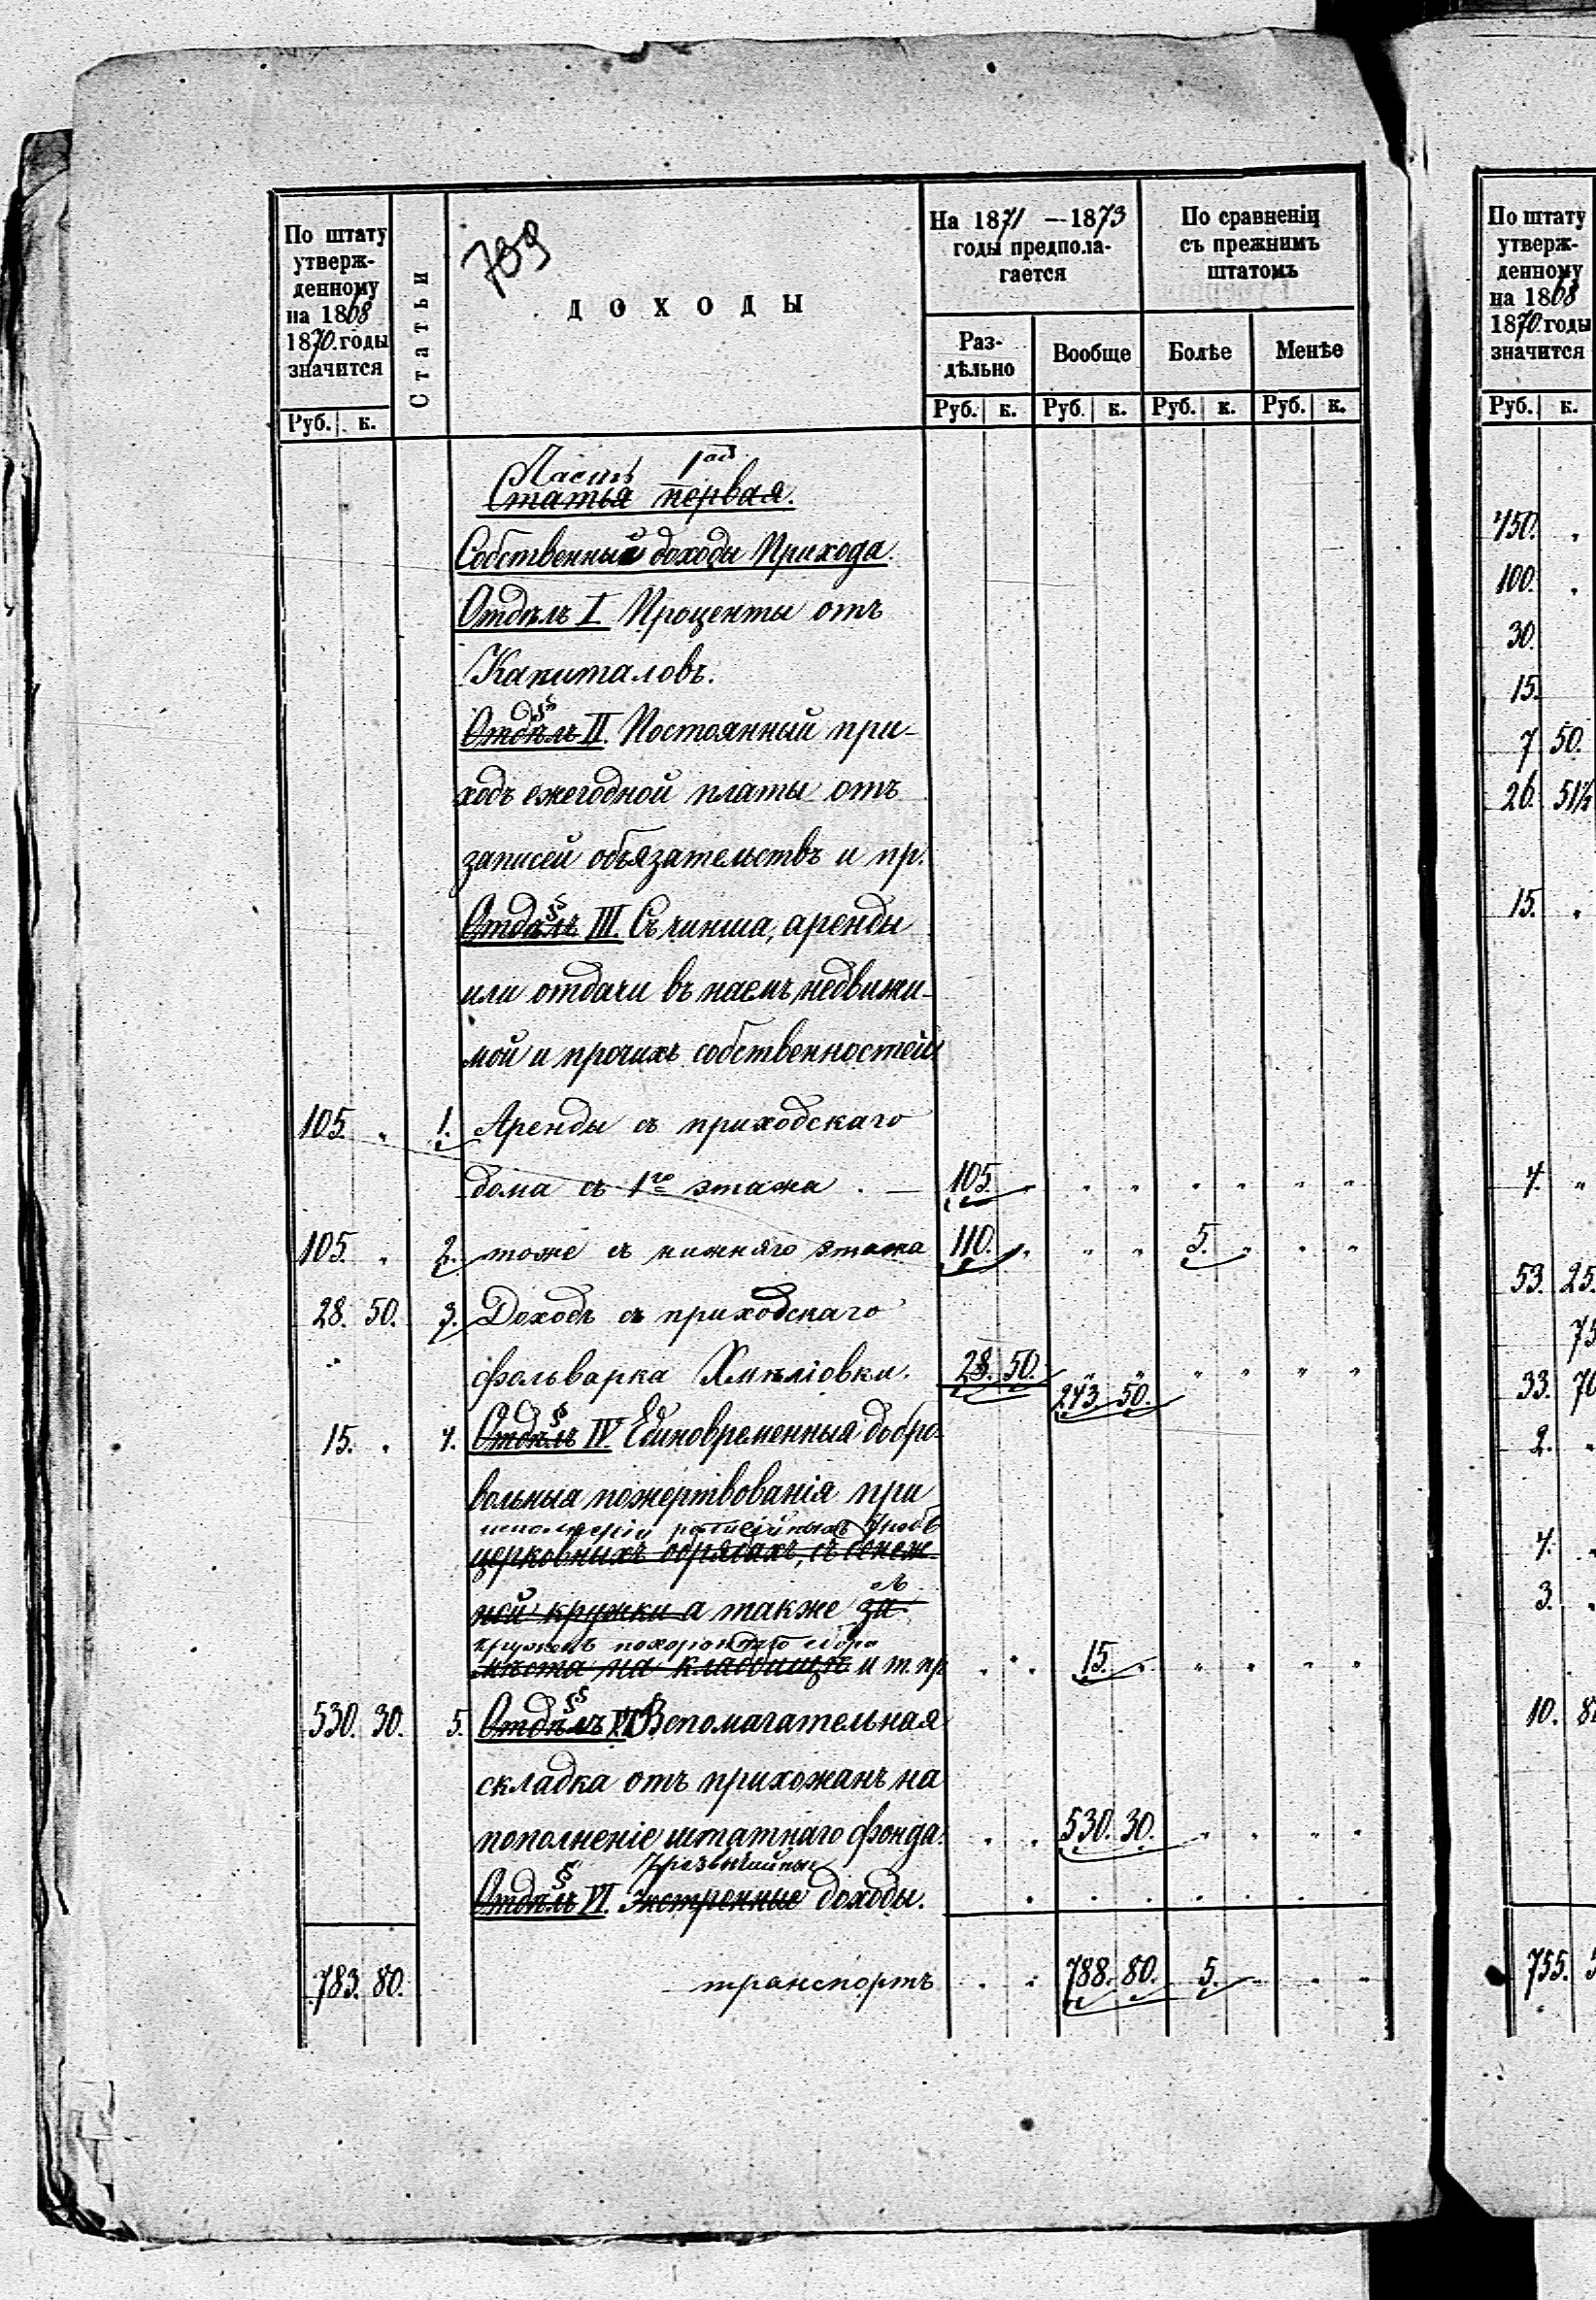 789
По штату
утверж-
денному
на 1868
1870. годы
значится
Руб. к.
Статьи
ДОХОДЫ
На 1871 — 1873
годы предпола-
гается
По сравненіи
съ прежнимъ
штатомъ
Раз-
дѣльно
Вообще
Болѣе
Менѣе
Руб. к. Руб. к. Руб. к. Руб. к.
Часть 1ая
Статья первая.
Собственный доходы Прихода.
Отдѣлъ I. Проценты отъ
Капиталовъ.
§§
Отдѣлъ II. Постоянный при-
ходъ ежегодной платы отъ
записей обязательствъ и пр.
§§
Отдѣлъ III. Съ чинша, аренды
или отдачи въ наемъ недвижи-
мой и прочихъ собственностей
105. " 1. Аренды съ приходскаго
дома съ 1го этажа. — 105. " " " " " " "
105. " 2. тоже съ нижняго этажа 110. " " " 5. " " "
28. 50. 3. Доходъ съ приходскаго
фольварка Хмѣліовки. 28. 50. " " " " " "
243. 50.
§
15. " 4. Отдѣлъ IV Единовременныя добро-
вольныя пожертвованія при
исполненіи религійныхъ требъ
церковныхъ обрядахъ, съ денеж-
ной кружки а также за
кружекъ похороннаго сбора
мѣста на кладбищѣ и т. пр . . 15. " " " " "
§§
530. 30. 5. Отдѣлъ V Вспомагательная
складка отъ прихожанъ на
пополненіе штатнаго фонда. . . 530. 30. " " " "
§ Чрезвычайные
Отдѣлъ VI. Экстренные доходы. . . . . . . .
783. 80. транспортъ . . 788. 80. 5. " " "
По штату
утверж-
денному
на 1868
1870. годы
значится
Руб. к.
450. "
100. "
30.
15.
7 50.
26. 51½
15. "
4. "
53. 25.
75
33. 70
2. "
4. "
3. "
10. 8
755. 5